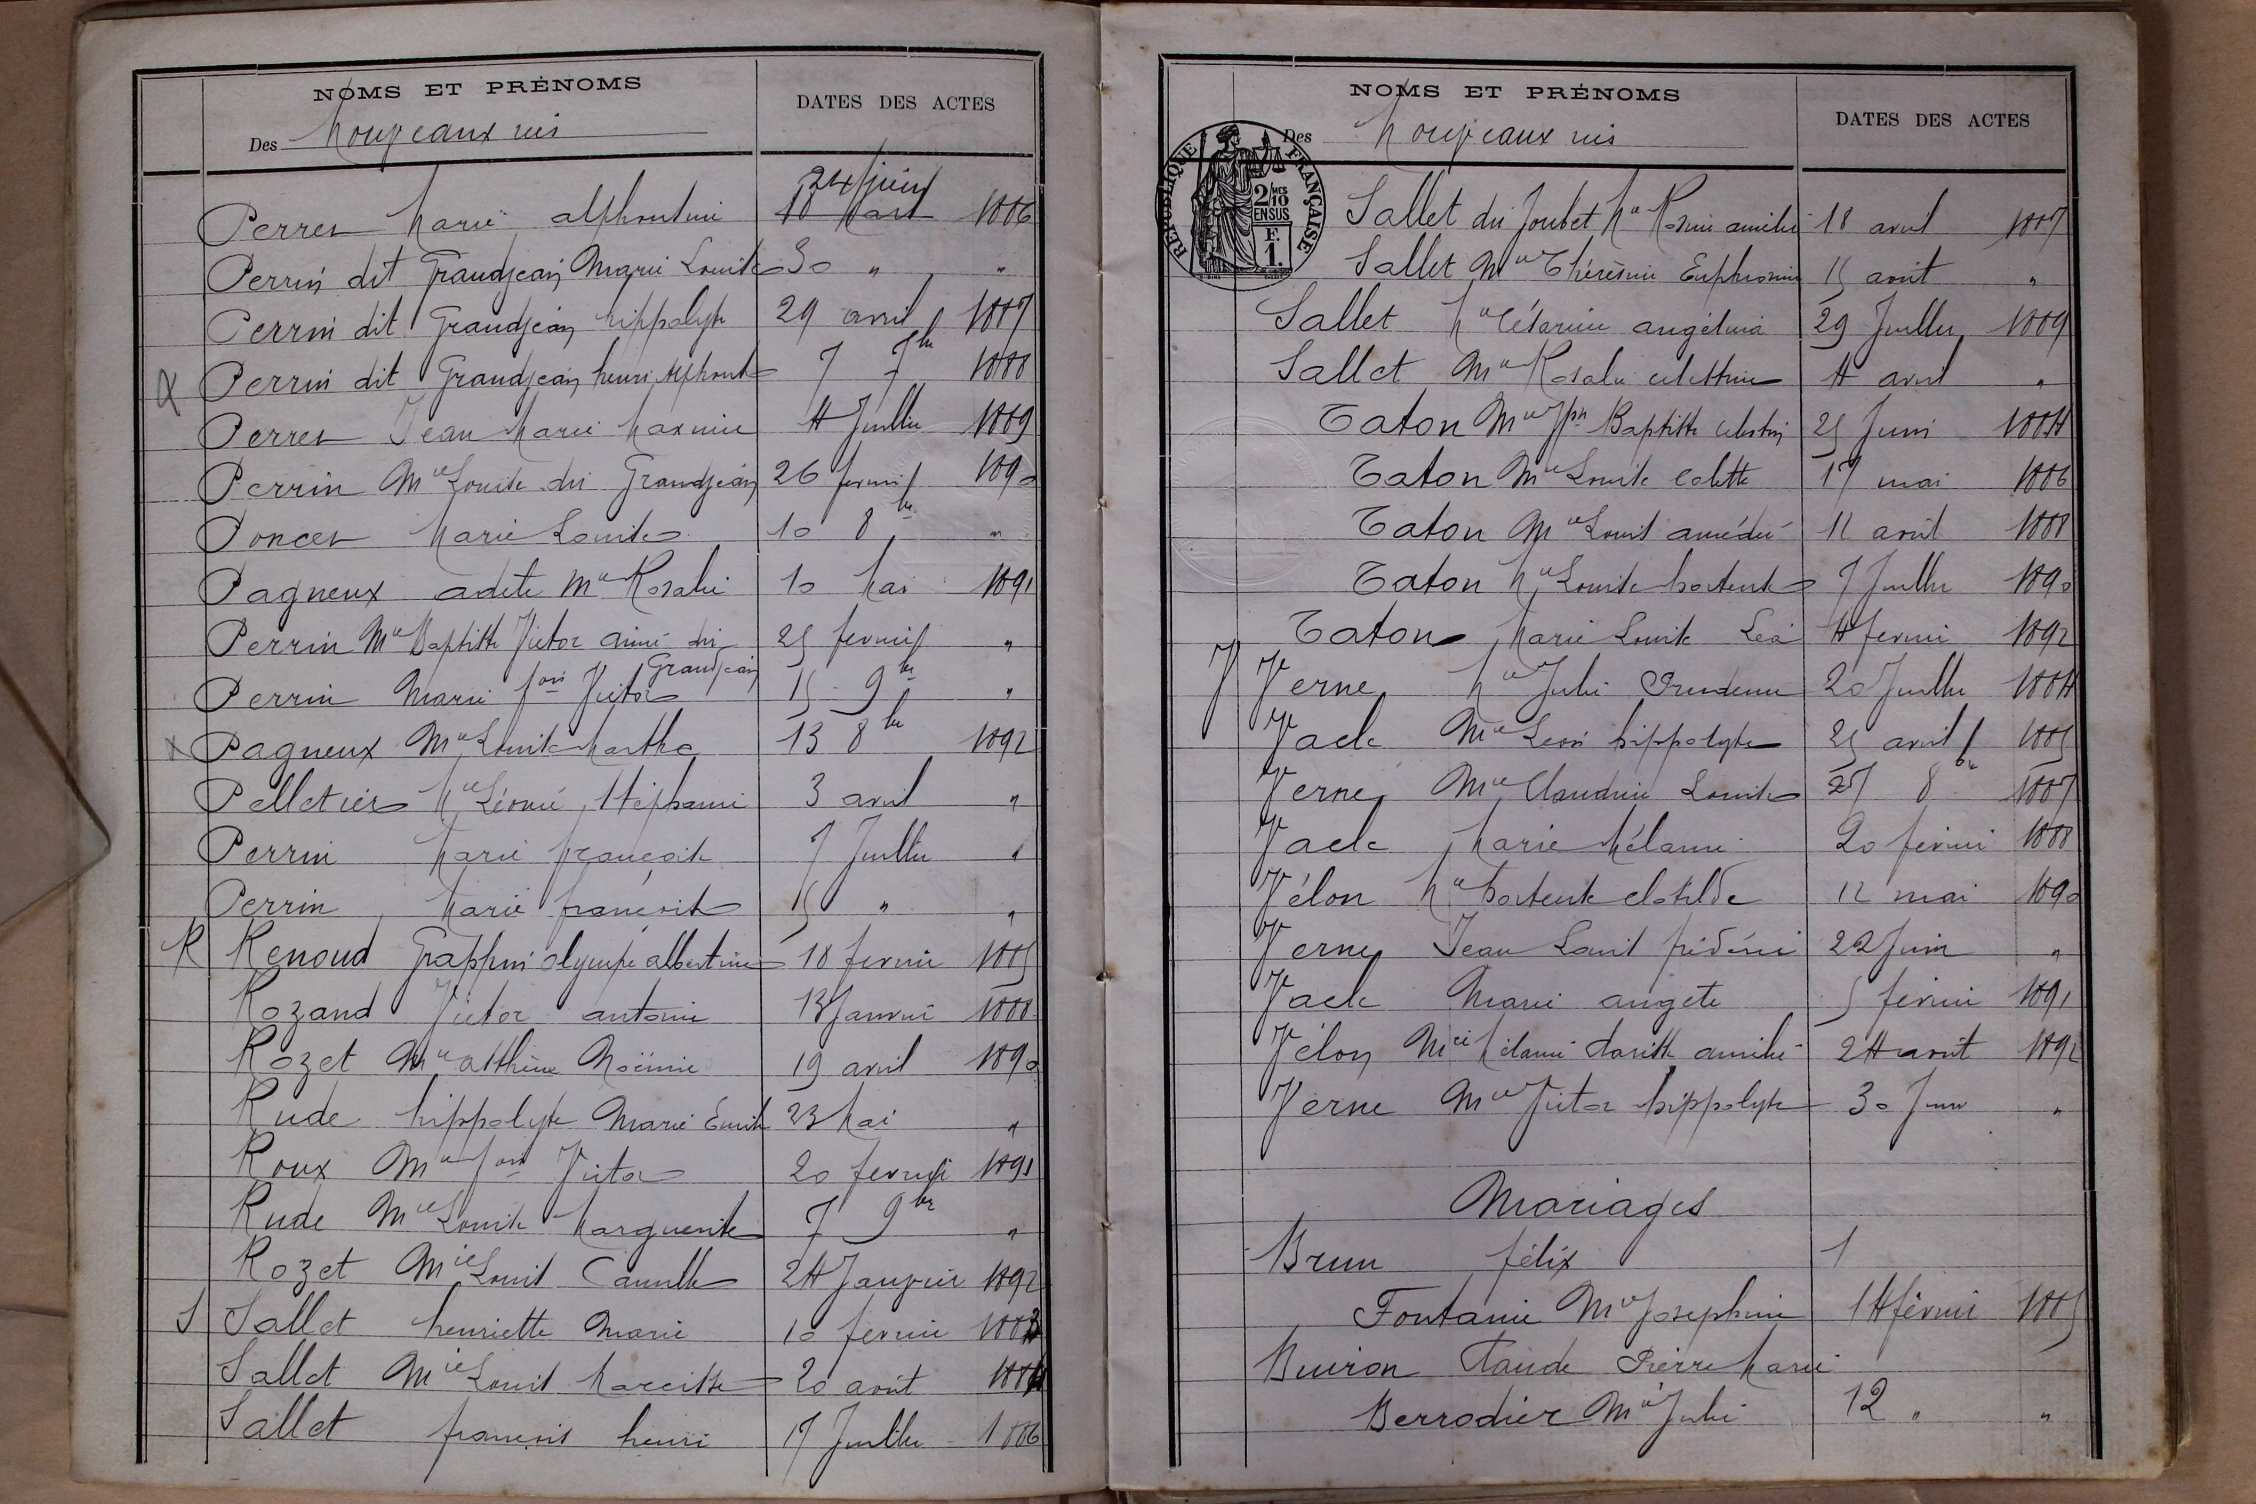 NOMS ET PRÉNOMS
DATES DES ACTES
Des Nouveaux nés
Perret Marie alphonsine 24 juin 10 Mars 1886
Perrin dit Grandjean Marie Louise 30 " "
Perrin dit Grandjean hippolyte 29 avril 1887
Perrin dit Grandjean henri alphonse 7 7bre 1888
Perret Jean Marie Maxime 4 Juillet 1889
Perrin Mie Louise dit Grandjean 26 fevrier 1890
Poncet Marie Louise 10 8bre "
Pagneux adèle Mie Rosalie 10 Mai 1891
Perrin Mie Baptiste Victor aimé dit 25 fevrier "
Grandjean
Perrin Marie fois Victor 15 9bre "
Pagneux Mie Louise Marthe 13 8bre 1892
Pelletier Mie Léonie Stéphanie 3 avril "
Perrin Marie françoise 7 Juillet "
Perrin Marie françoise 15 " "
R Renoud Grappin olympe albertine 18 fevrier 1885
Rozand Victor antoine 13 Janvier 1888
Rozet Mie Noëmie 19 avril 1890
Rude hippolyte Marie Emile 23 Mai "
Roux Mie fois Victor 20 fevrier 1891
Rude Mie Louise Marguerite 7 9bre "
Rozet Mie Louis Camille 24 Janvier 1892
S Sallet henriette Marie 10 fevrier 1883
Sallet Mie Louis Narcisse 20 août 1884
Sallet françois henri 17 Juillet 1886
NOMS ET PRÉNOMS
DATES DES ACTES
Des Nouveaux nés
RÉPUBLIQUE FRANÇAISE
2/10MES
EN SUS
F.
1.
Sallet dit Joubet Mie Rosine amélie 18 avril 1887
Sallet Mie Thérésine Euphrosine 15 août "
Sallet Mie Césarine angélina 29 Juillet 1889
Sallet Mie Rosalie celestine 4 avril "
Taton Mie Jph Baptiste celestin 25 Juin 1884
Taton Mie Louise Colette 17 mai 1886
Taton Mie Louis amédée 11 août 1888
Taton Mie Louise hortense 7 Juillet 1890
Taton Marie Louise Léa 4 fevrier 1892
V Verne Mie Julie Prudence 20 Juillet 1884
Vacle Mie Léon hippolyte 25 avril 1885
Verne Mie Claudine Louise 27 8bre 1887
Vacle Marie Mélanie 20 fevrier 1888
Vélon Mie hortense clotilde 12 mai 1890
Verne Jean Louis frédéric 22 Juin "
Vacle Marie angèle 5 fevrier 1891
Vélon Mie Mélanie Clarisse amélie 24 août 1892
Verne Mie Victor hippolyte 30 Juin "
Mariages
Brun félix 1
Fontanie Mie Josephine 14 février 1885
Buiron Claude Pierre Marie
Berrodier Mie Julie 12 " "